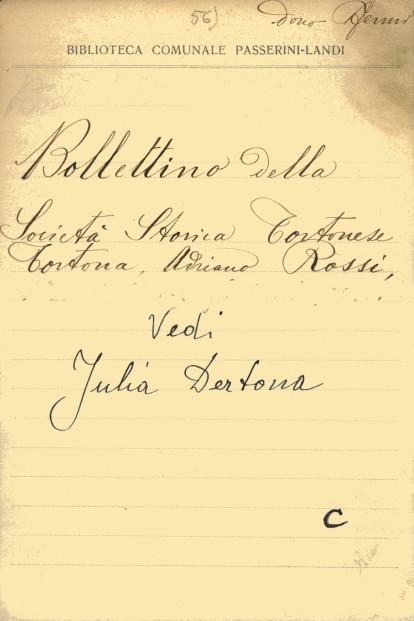 56)
dono
BIBLIOTECA COMUNALE PASSERINI-LANDI
Bollettino della
Società Storica Tortonese
Tortona, Adriano Rossi,
Vedi
Julia Dertona
C